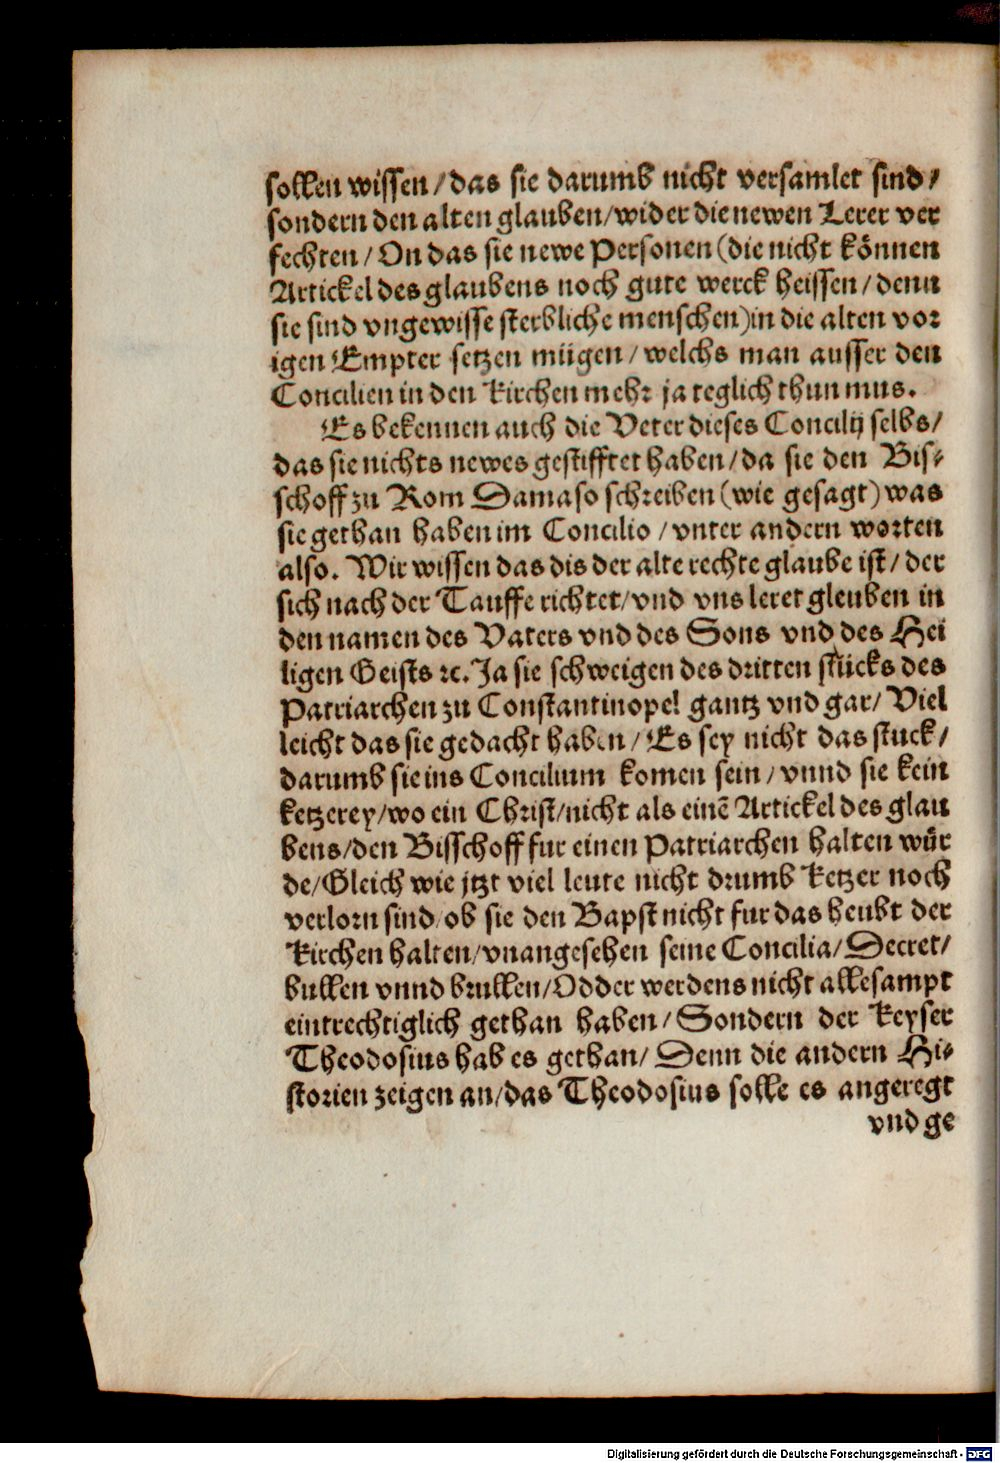 sollen wissen / das sie darumb nicht versamlet sind /
sondern den alten glauben / wider die newen Lerer ver
fechten / On das sie newe Personen (die nicht können
Artickel des glaubens noch gute werck heissen / denn
sie sind vngewisse sterbliche menschen) in die alten vor
igen Empter setzen mügen / welchs man ausser den
Concilien in den Kirchen mehr ja teglich thun mus.
Es bekennen auch die Veter dieses Concilij selbs /
das sie nichts newes gestifftet haben / da sie den Bis-
schoff zu Rom Damaso schreiben (wie gesagt) was
sie gethan haben im Concilio / vnter andern worten
also. Wir wissen das dis der alte rechte glaube ist / der
sich nach der Tauffe richtet / vnd vns leret gleuben in
den namen des Vaters vnd des Sons vnd des Hei
ligen Geists ꝛc. Ja sie schweigen des dritten stücks des
Patriarchen zu Constantinopel gantz vnd gar / Viel
leicht das sie gedacht haben / Es sey nicht das stuck /
darumb sie ins Concilium komen sein / vnnd sie kein
ketzerey / wo ein Christ / nicht als einē Artickel des glau
bens / den Bisschoff fur einen Patriarchen halten wür
de / Gleich wie jtzt viel leute nicht drumb Ketzer noch
verlorn sind / ob sie den Bapst nicht fur das heubt der
Kirchen halten / vnangesehen seine Concilia / Decret /
bullen vnnd brullen / Odder werdens nicht allesampt
eintrechtiglich gethan haben / Sondern der Keyser
Theodosius hab es gethan / Denn die andern Hi-
storien zeigen an / das Theodosius solle es angeregt
vnd ge
Digitalisierung gefördert durch die Deutsche Forschungsgemeinschaft - DFG